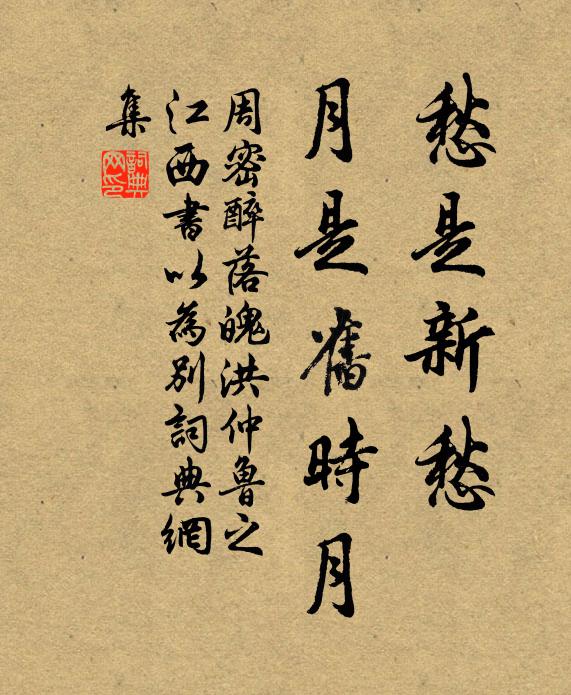 愁是新愁
月是舊時月
周密醉落魄洪仲魯之
江西書以為別詞典網
集
詞典
网印